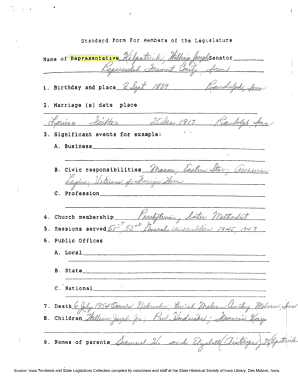 Standard Form For Members of the Legislature
Name of Representative Kilpatrick, William Joseph Senator
Represented Fremont County, Iowa
1. Birthday and place 2 Sept 1889 Randolph, Iowa
2. Marriage (s) date place
Louise 25 Dec 1917 Randolph, Iowa
3. Significant events for example:
A. Business
B. Civic responsibilities Mason, Eastern Star, American
Legion, Veterans of Foreign Wars
C. Profession
4. Church membership Presbyterian, later Methodist
5. Sessions served 51st, 52nd General Assemblies 1945, 1947
6. Public Offices
A. Local
B. State
C. National
7. Death 6 July 1954 Omaha Nebraska buried Malvern Cemetery Malvern, Iowa
8. Children William Joseph Jr; Paul; Francis Kay
9. Names of parents Samuel H. and Elizabeth Kilpatrick
Source: Iowa Territorial and State Legislators Collection compiled by volunteers and staff at the State Historical Society of Iowa Library, Des Moines, Iowa.